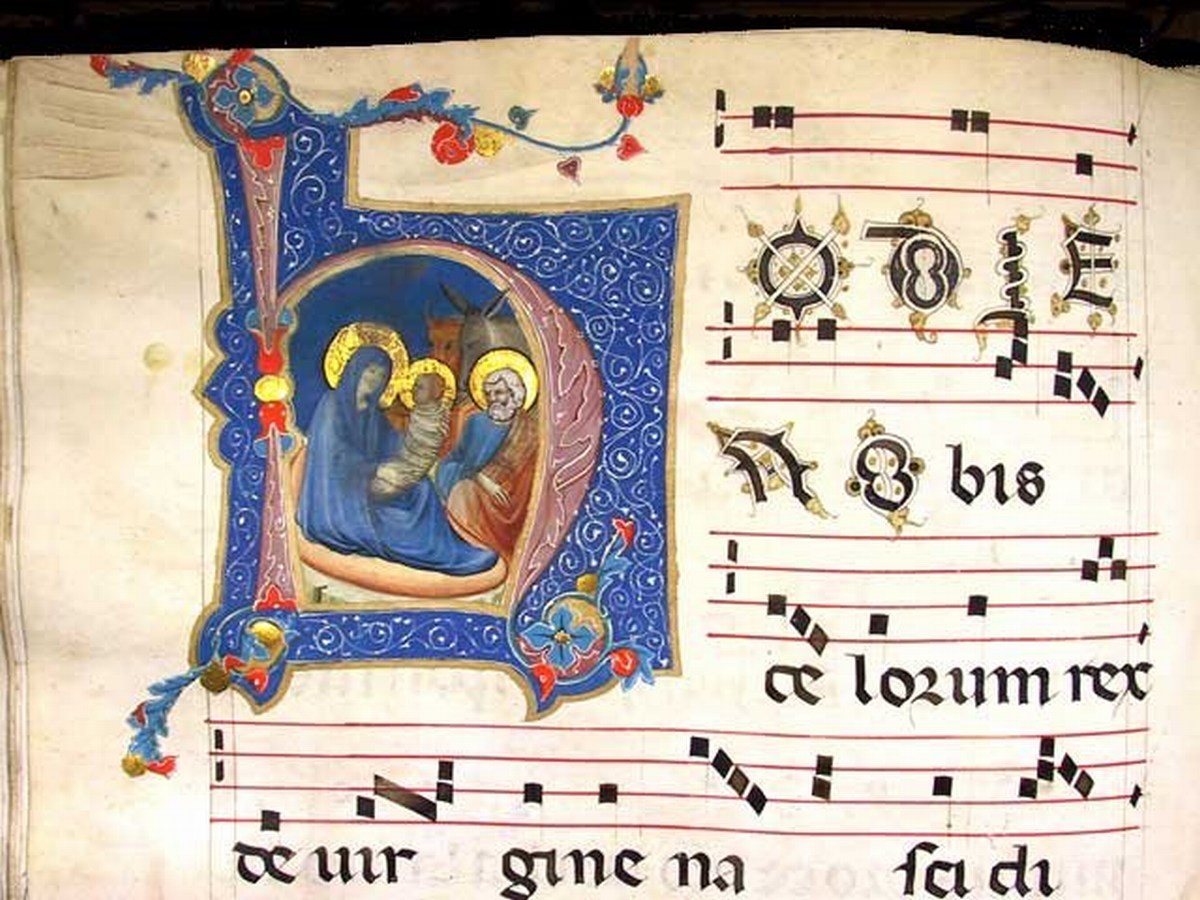 HODIE
NOBIS
celorum rex
de uir gine na sci di